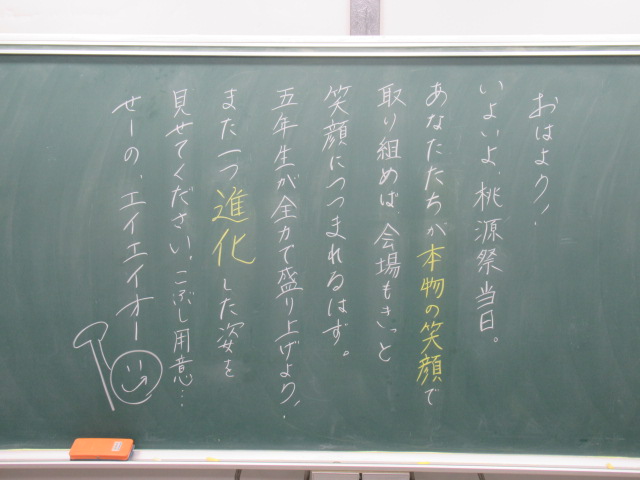 おはよう！
いよいよ、桃源祭当日。
あなたたちが本物の笑顔で
取り組めば、会場もきっと
笑顔につつまれるはず。
五年生が全力で盛り上げよう！
また一つ進化した姿を
見せてください。こぶし用意…
せーの、エイエイオー